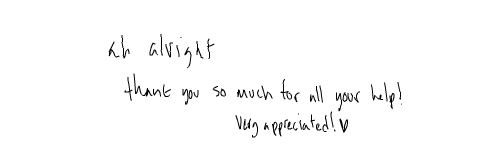 ah alright
thank you so much for all your help!
Very appreciated!♥